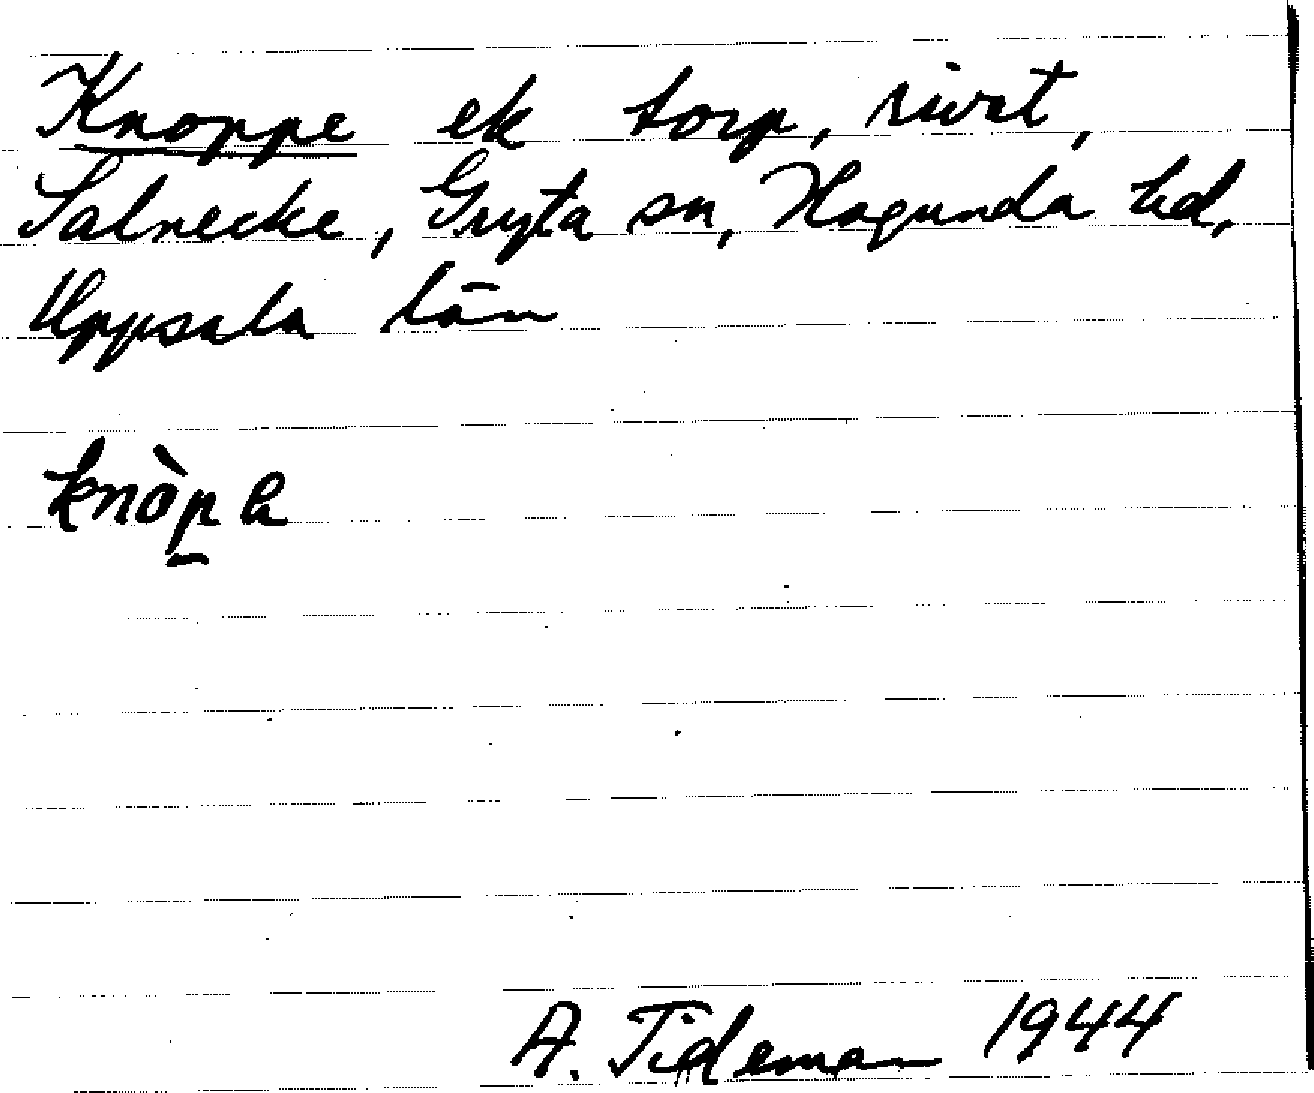 Knoppe ek torp, rivet,
Salnecke, Gryta sn, Hagunda hd,
Uppsala län
knòp̱a
A. Tideman 1944